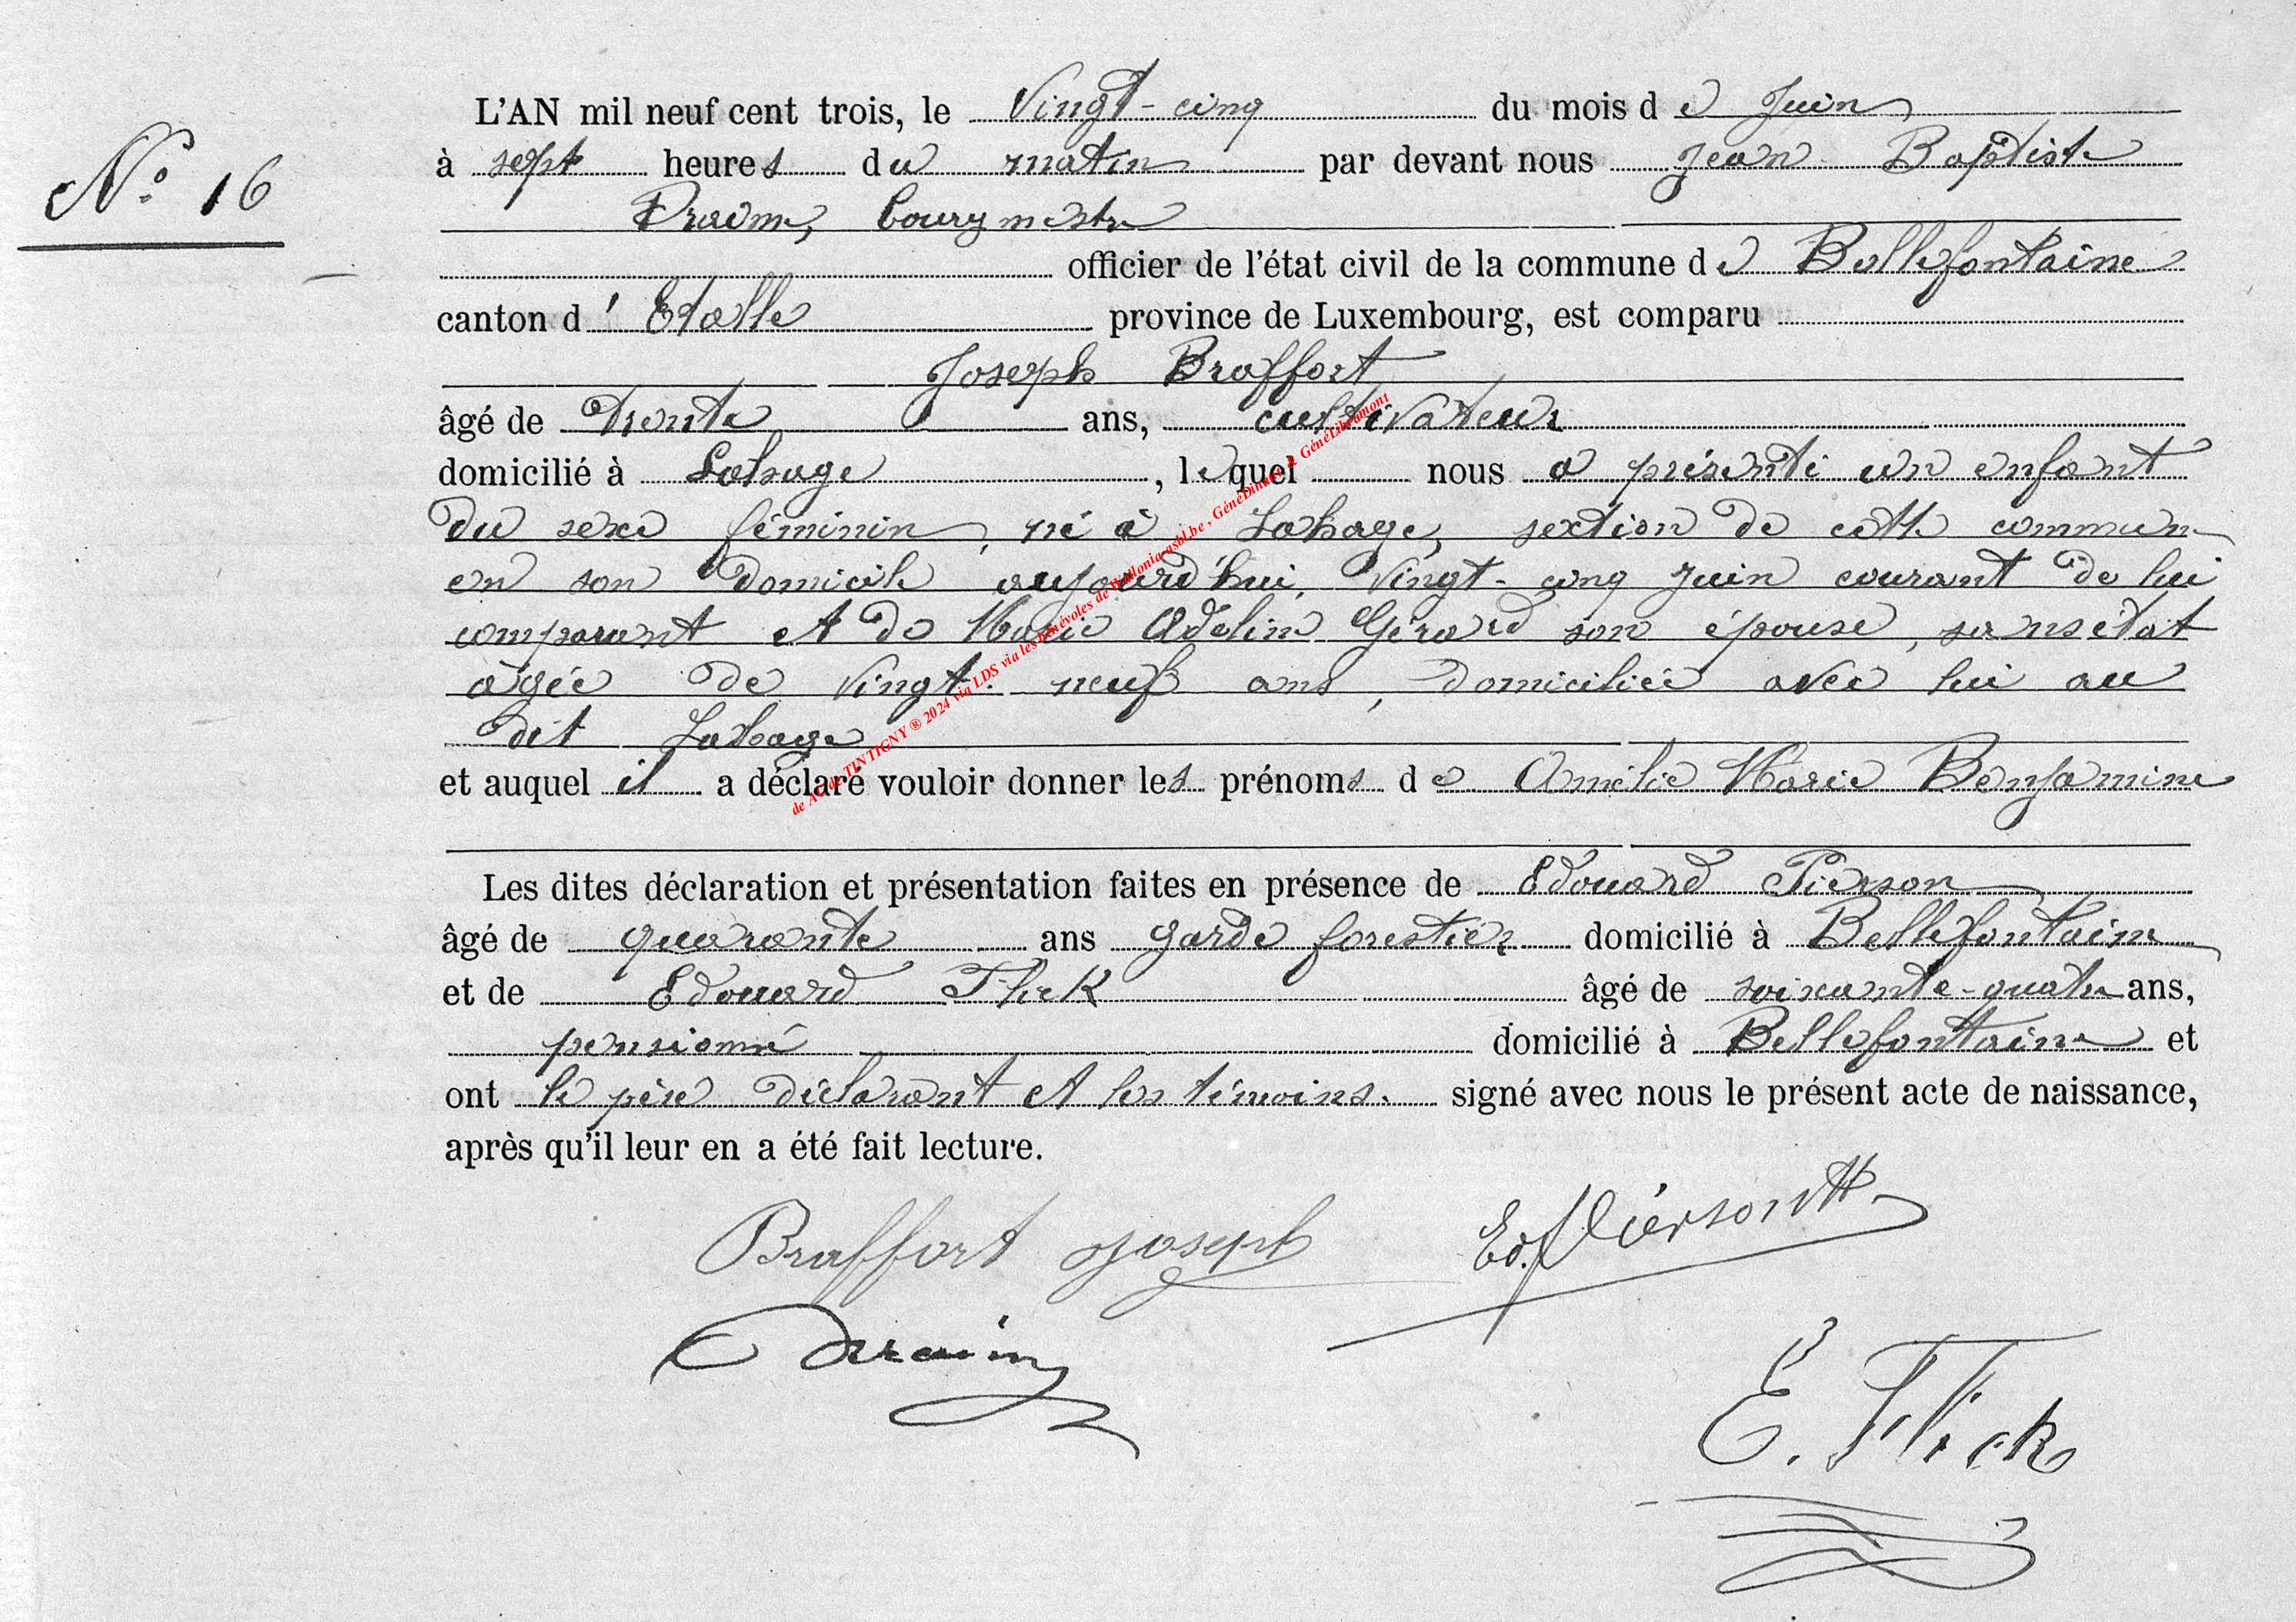 L'AN mil neuf cent trois, le Vingt-cinq du mois de Juin
N° 16
à sept heures du matin par devant nous Jean Baptiste
bourgmestre
officier de l'état civil de la commune de Bellefontaine
canton d'Etalle province de Luxembourg, est comparu
Joseph Braffort
âgé de trente ans, cultivateur
domicilié à Lahage, lequel nous a présenté un enfant
du sexe féminin, né à Lahage, sextion de cette commune
en son domicile aujourd'hui, Vingt-cinq Juin courant de lui
comparant et de Marie Adeline Gérard son épouse, sans état
agée de Vingt-neuf ans, domiciliée avec lui au
dit Lahage
et auquel il a déclaré vouloir donner les prénoms de Amélie Marie Benjamine
Les dites déclaration et présentation faites en présence de Edouard Pierson
âgé de quarante ans garde forestier domicilié à Bellefontaine
et de Edouard Flick âgé de soixante-quatre ans,
pensionné domicilié à Bellefontaine et
ont le père déclarant et les témoins. signé avec nous le présent acte de naissance,
après qu'il leur en a été fait lecture.
Braffort Joseph Ed. Pierson
E. Flick
de TINTIGNY ® 2024 via LDS via les bénévoles de Wallonia-asbl.be, GénéDinant & GénéLibramont